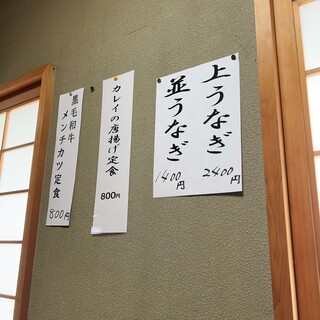 上うなぎ
2400円
並うなぎ
1400円
カレイの唐揚げ定食
800円
黒毛和牛
メンチカツ定食
800円